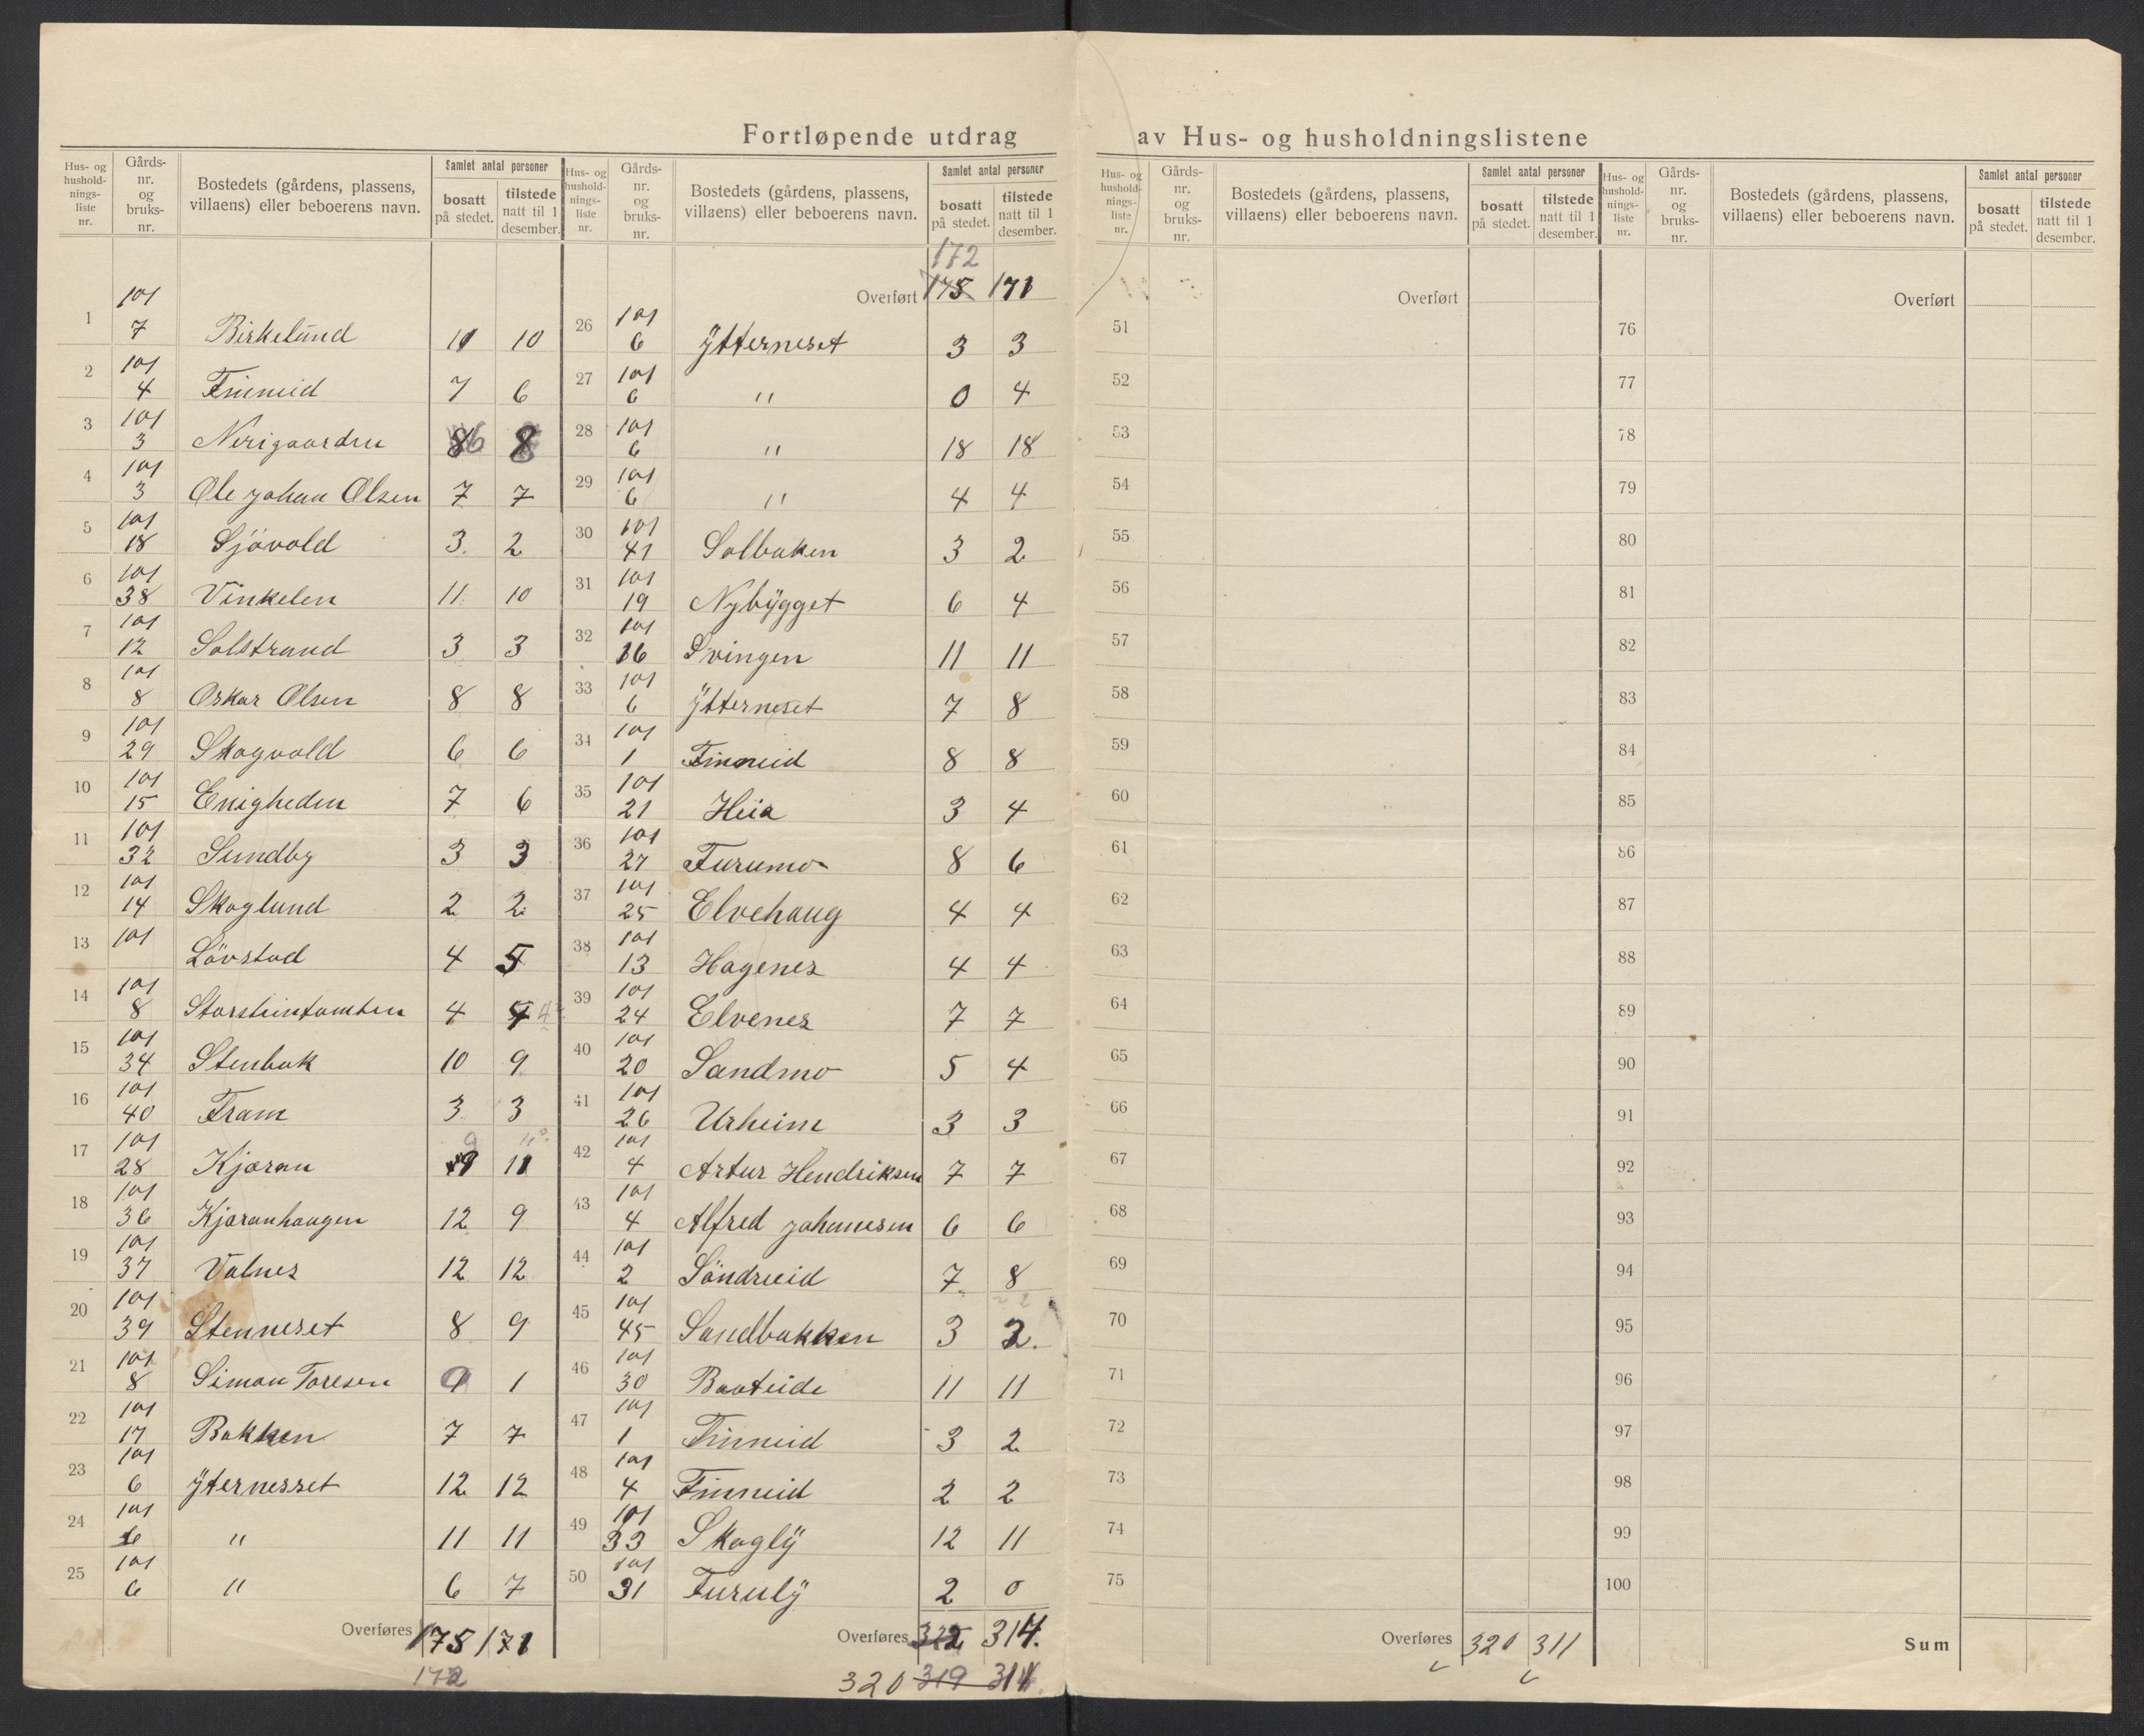 Fortløpende utdrag av Hus- og husholdningslistene
Hus- og husholdningsliste nr. Gårdsnr. og bruksnr. Bostedets (gårdens, plassens, villaens) eller beboerens navn. Samlet antal personer bosatt på stedet. tilstede natt til 1 desember.
1 101 7 Birkelund 11 10
2 101 4 Finneid 7 6
3 101 3 Nerigaarden 8 6 8
4 101 3 Ole Johan Olsen 7 7
5 101 18 Sjövold 3. 2
6 101 38 Vinkelen 11. 10
7 101 12 Solstrand 3 3
8 101 8 Oskar Olsen 8 8
9 101 29 Skogvold 6 6
10 101 15 Enigheden 7 6
11 101 32 Sundby 3 3
12 101 14 Skoglund 2 2
13 101 Lövstad 4 5
14 101 8 Storsteintomten 4 4
15 101 34 Stenbak 10 9
16 101 40 Fram 3 3
17 101 28 Kjæran 9 11
18 101 36 Kjæranhaugen 12 9
19 101 37 Valnes 12 12
20 101 39 Stenneset 8 9
21 101 8 Simon Toresen 1
22 101 17 Bakken 7 7
23 101 6 Yternesset 12 12
24 101 6 " 11 11
25 101 6 " 6 7
Overføres 175 171
172
Hus- og husholdningsliste nr. Gårdsnr. og bruksnr. Bostedets (gårdens, plassens, villaens) eller beboerens navn. Samlet antal personer bosatt på stedet. tilstede natt til 1 desember.
172
Overført 175 171
26 101 6 Ytterneset 3 3
27 101 6 " 0 4
28 101 6 " 18 18
29 101 6 " 4 4
30 101 41 Solbaken 3 2
31 101 19 Nybygget 6 4
32 101 16 Svingen 11 11
33 101 6 Ytterneset 7 8
34 101 1 Finneid 8 8
35 101 21 Heia 3 4
36 101 27 Furumo 8 6
37 101 25 Elvehaug 4 4
38 101 13 Hagenes 4 4
39 101 24 Elvenes 7 7
40 101 20 Sandmo 5 4
41 101 26 Urheim 3 3
42 101 4 Artur Hendriksen 7 7
43 101 4 Alfred Johannesen 6 6
44 101 2 Söndreid 7. 8
45 101 45 Sandbakken 3 2.
46 101 30 Baateide 11 11
47 101 1 Finneid 3 2
48 101 4 Finneid 2 2
49 101 33 Skogly 12 11
50 101 31 Furuly 2 0
Overføres 322 314.
320 319 311
Hus- og husholdningsliste nr. Gårdsnr. og bruksnr. Bostedets (gårdens, plassens, villaens) eller beboerens navn. Samlet antal personer bosatt på stedet. tilstede natt til 1 desember.
Overført
51
52
53
54
55
56
57
58
59
60
61
62
63
64
65
66
67
68
69
70
71
72
73
74
75
Overføres 320 311
Hus- og husholdningsliste nr. Gårdsnr. og bruksnr. Bostedets (gårdens, plassens, villaens) eller beboerens navn. Samlet antal personer bosatt på stedet. tilstede natt til 1 desember.
Overført
76
77
78
79
80
81
82
83
84
85
86
87
88
89
90
91
92
93
94
95
96
97
98
99
100
Sum